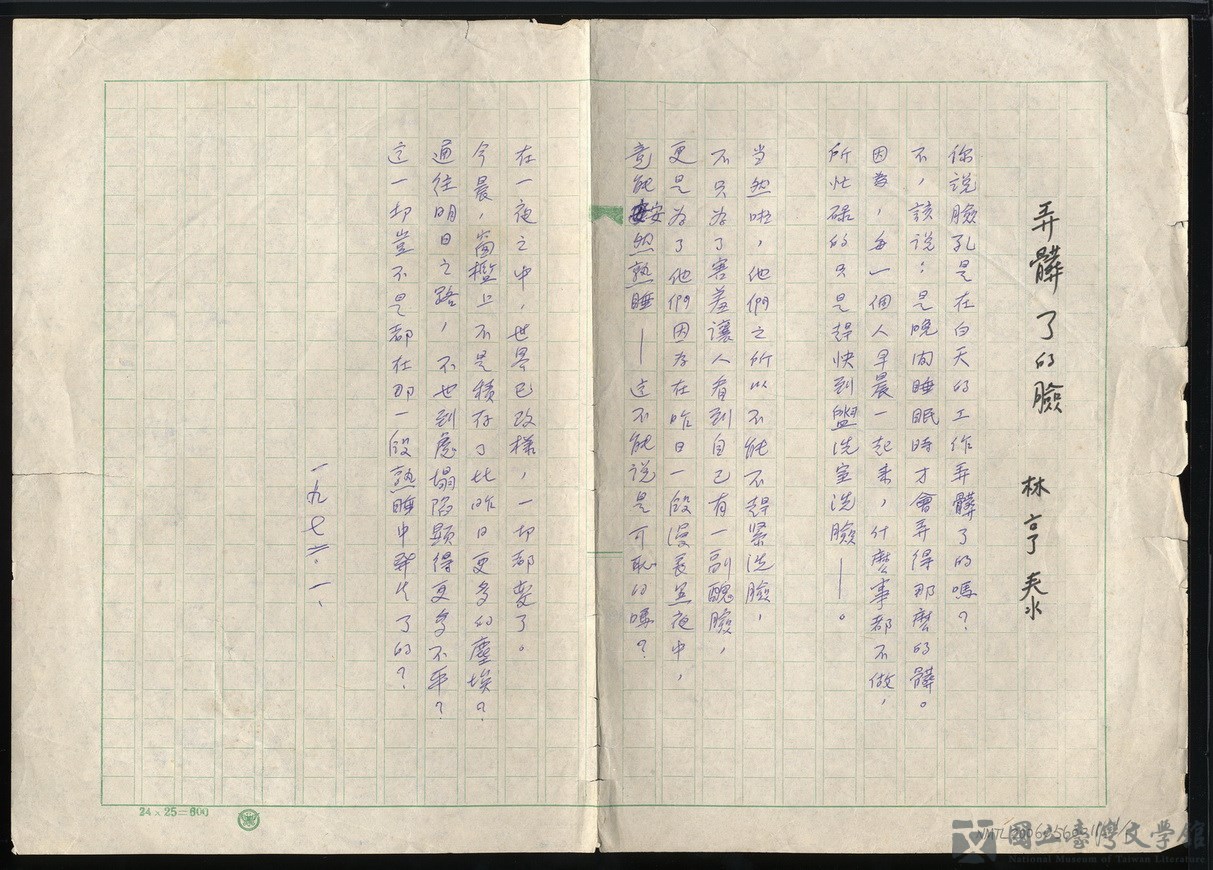 弄髒了的臉
林亨泰
你說臉孔是在白天的工作弄髒了的嗎？
不，該說：是晚间睡眠時才會弄得那麽的髒。
因為，每一個人早晨一起来，什麽事都不做，
所忙碌的只是趕快到盥洗室洗臉——。
当然啦，他們之所以不能不趕緊洗臉，
不只为了害羞讓人看到自己有一副醜臉，
更是为了他們因为在昨日一段漫長黑夜中，
竟能安然熟睡——这不能说是可恥的嗎？
在一夜之中，世界已改樣，一切都变了。
今晨，窗檻上不是積存了比昨日更多的塵埃？
通往明日之路，不也到處塌陷顕得更多不平？
这一切豈不是都在那一段熟睡中発生了的？
一九七二.一、
24×25=600
國立臺灣文學館
National Museum of Taiwan Literature